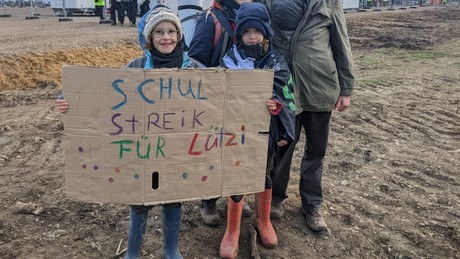 SCHUL
StREiK
FÜR LÜtZi